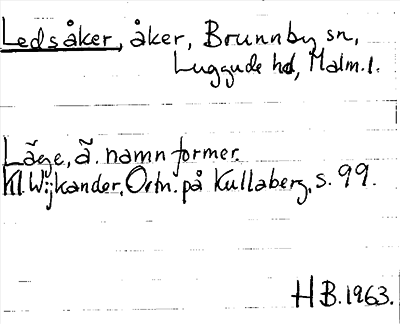 Ledsåker, åker, Brunnby sn,
Luggude hd, Malm. l.
Läge, ä. namnformer.
Kl. Wijkander, Ortn. på Kullaberg, s. 99.
HB. 1963.